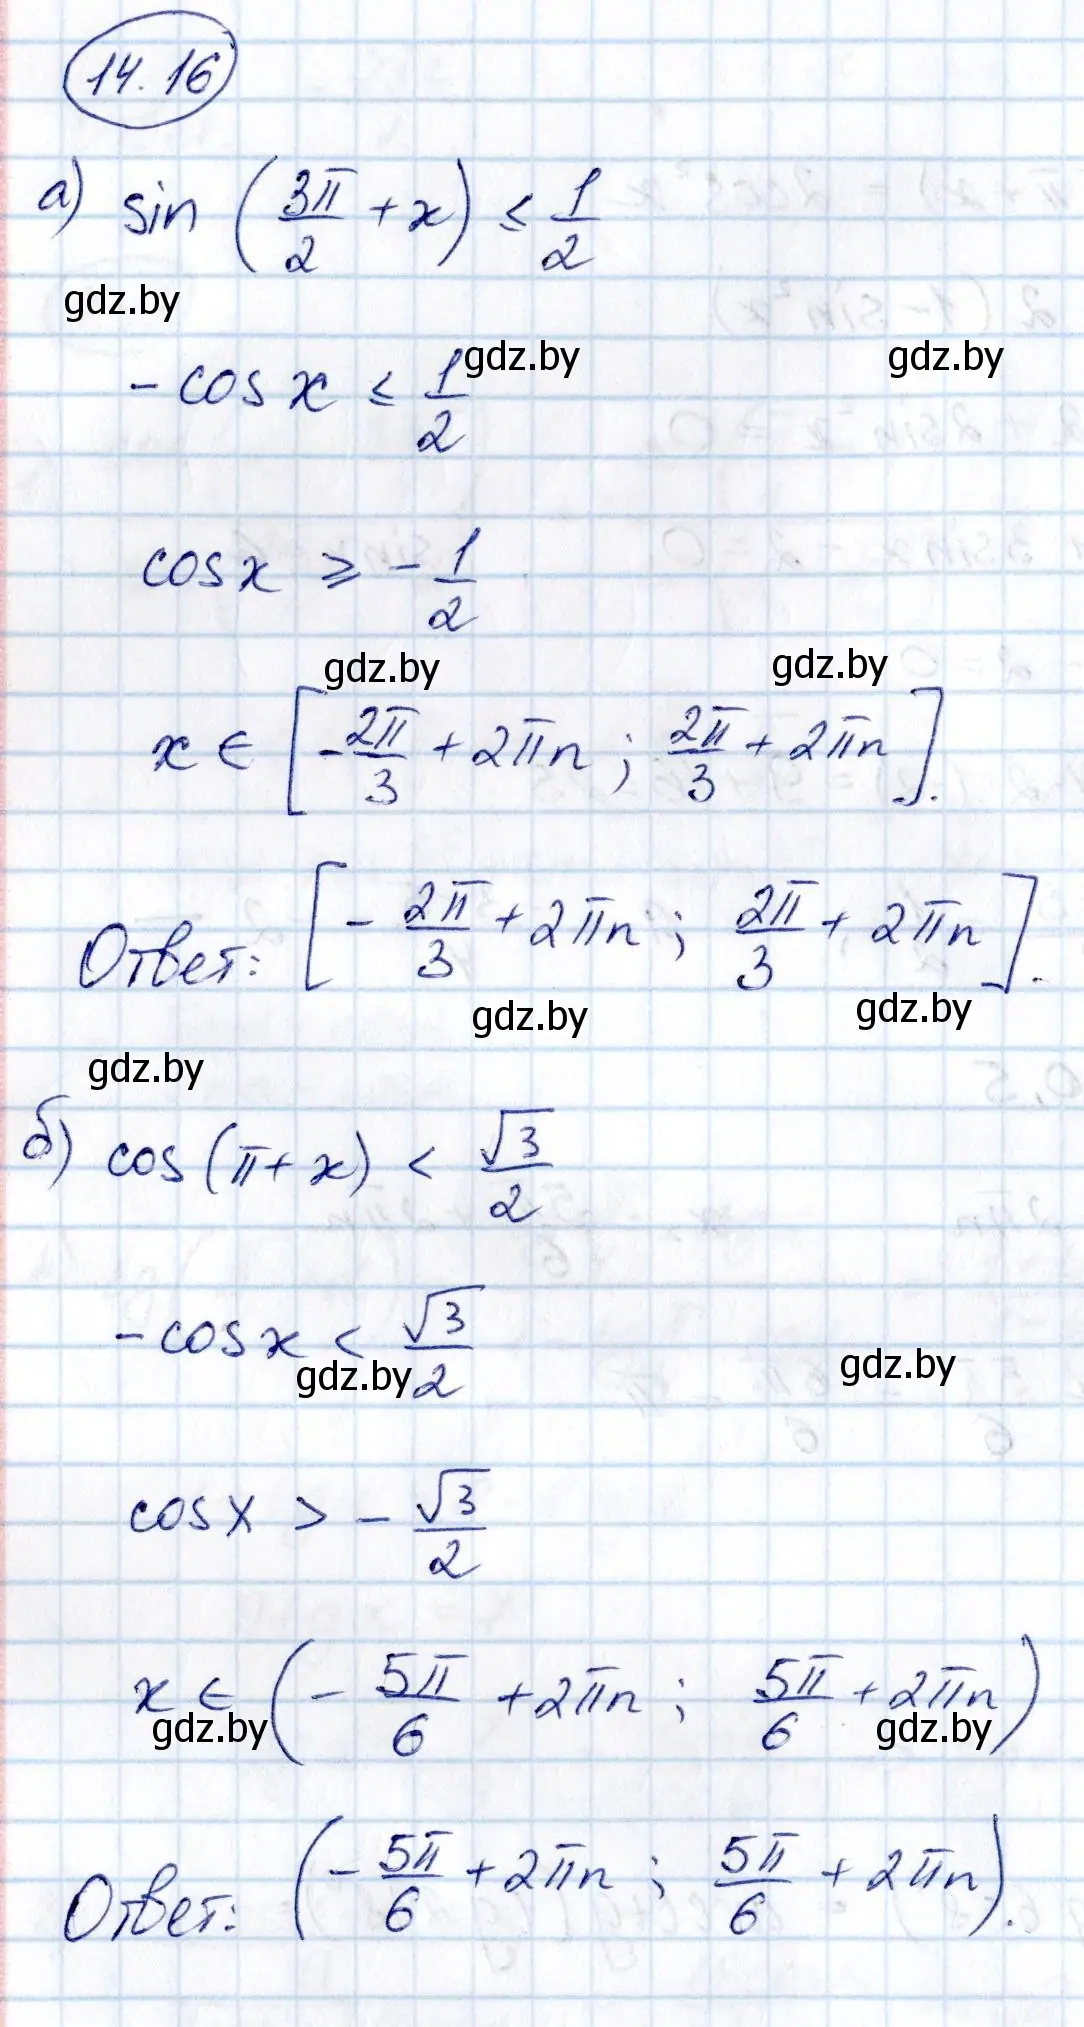 14.16
а) sin (3π/2 + x) ≤ 1/2
gdz.by
gdz.by gdz.by
- cos x ≤ 1/2
cos x ⩾ - 1/2
gdz.by gdz.by
x ∈ [-2π/3 + 2πn ; 2π/3 + 2πn].
Ответ: [- 2π/3 + 2πn ; 2π/3 + 2πn].
gdz.by gdz.by
gdz.by
б) cos (π + x) < √3/2
- cos x < √3/2
gdz.by gdz.by
cos x > - √3/2
x ∈ (- 5π/6 + 2πn ; 5π/6 + 2πn)
gdz.by gdz.by
Ответ: (- 5π/6 + 2πn ; 5π/6 + 2πn).